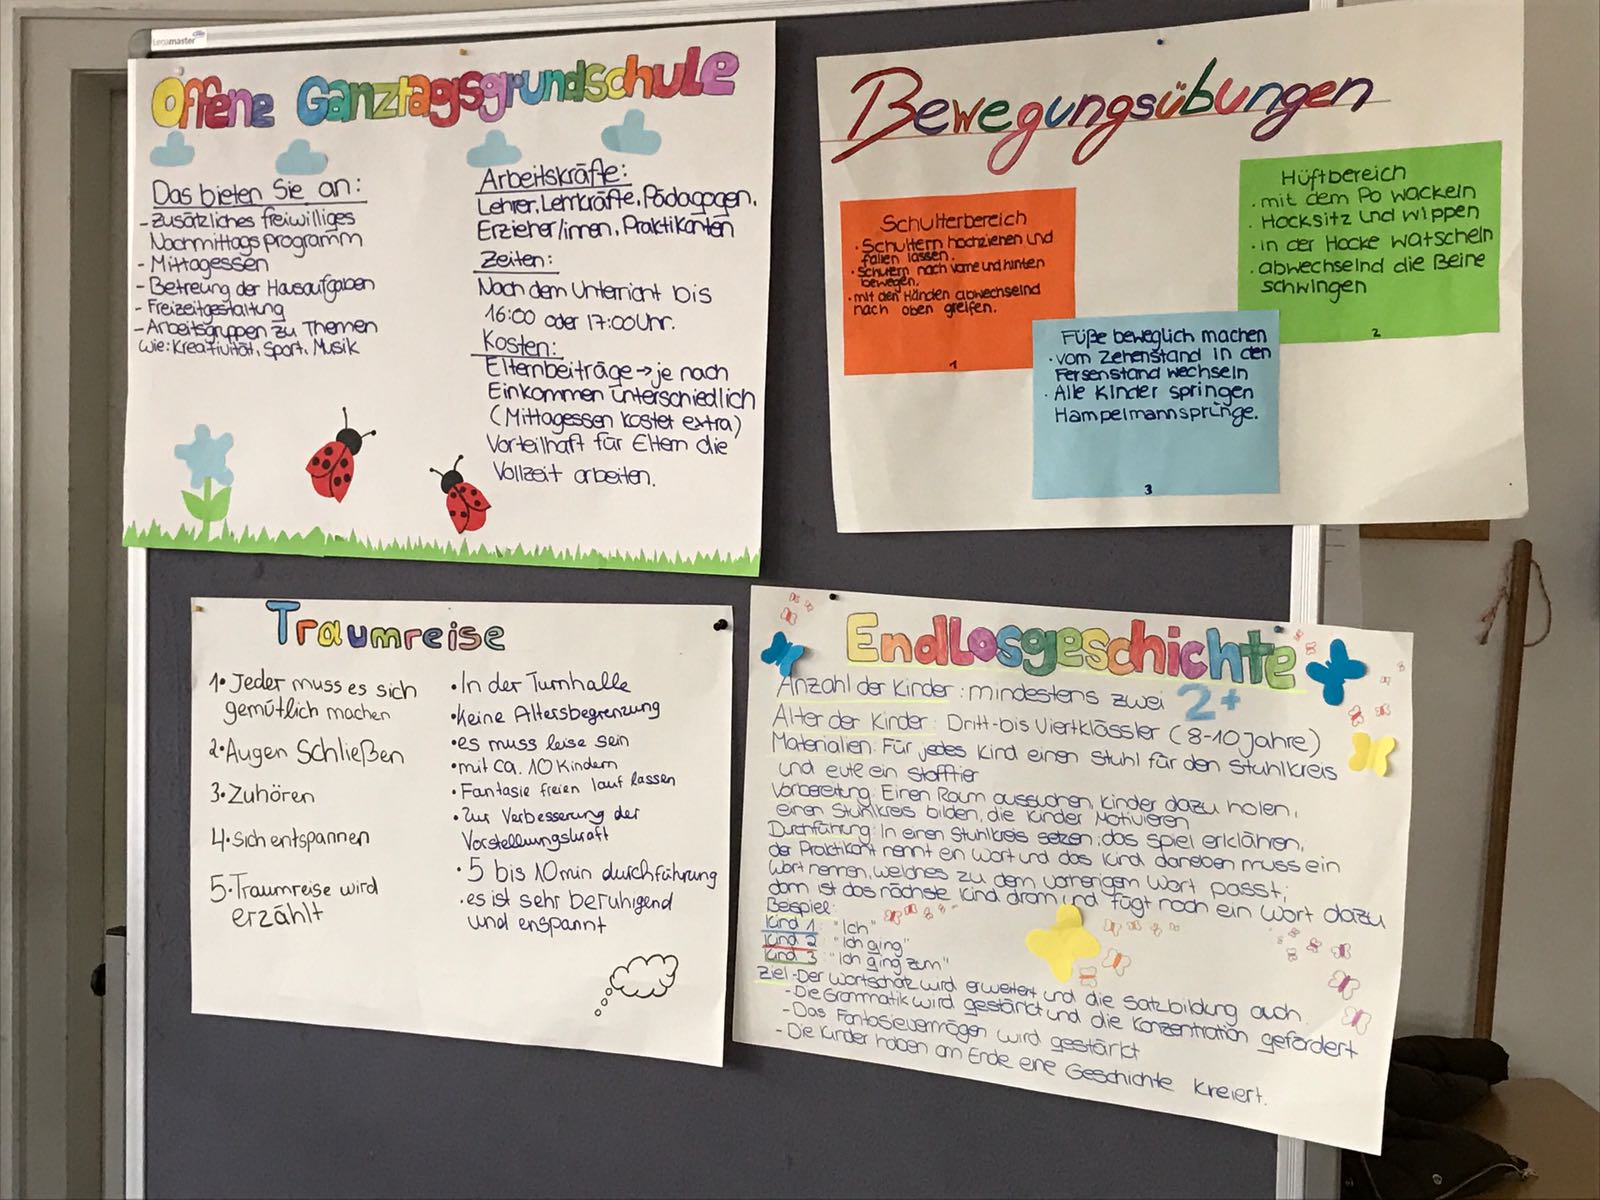 Legamaster
Offene Ganztagsgrundschule
Das bieten Sie an:
- Zusätzliches freiwilliges
Nachmittagsprogramm
- Mittagessen
- Betreung der Hausaufgaben
- Freizeitgestaltung
- Arbeitsgruppen zu Themen
wie: Kreativität, Sport, Musik
Arbeitskräfte:
Lehrer, Lehrkräfte, Pädagogen,
Erzieher/innen, Praktikanten
Zeiten:
Nach dem Unterricht bis
16:00 oder 17:00 Uhr.
Kosten:
Elternbeiträge → je nach
Einkommen unterschiedlich
(Mittagessen kostet extra)
Vorteilhaft für Eltern die
Vollzeit arbeiten.
Bewegungsübungen
Schulterbereich
• Schultern hochziehen und
fallen lassen.
• Schultern nach vorne und hinten
bewegen.
• mit den Händen abwechselnd
nach oben greifen.
1
Hüftbereich
• mit dem Po wackeln
• Hocksitz und wippen
• in der Hocke watscheln
• abwechselnd die Beine
schwingen
2
Füße beweglich machen
• vom Zehenstand in den
Fersenstand wechseln
• Alle Kinder springen
Hampelmannsprünge.
3
Traumreise
1• Jeder muss es sich
gemütlich machen
2• Augen Schließen
3• Zuhören
4• sich entspannen
5• Traumreise wird
erzählt
• In der Turnhalle
• keine Altersbegrenzung
• es muss leise sein
• mit ca. 10 Kindern
• Fantasie freien lauf lassen
• Zur Verbesserung der
Vorstellungskraft
• 5 bis 10 min durchführung
• es ist sehr beruhigend
und enspannt
Endlosgeschichte
Anzahl der Kinder: mindestens zwei 2+
Alter der Kinder: Dritt-bis Viertklässler (8-10 Jahre)
Materialien: Für jedes Kind einen Stuhl für den Stuhlkreis
und ein Stofftier
Vorbereitung: Einen Raum aussuchen, Kinder dazu holen,
einen Stuhlkreis bilden, die Kinder Motivieren
Durchführung: In einen Stuhlkreis setzen; das Spiel erklähren,
der Praktikant nennt ein Wort und das Kind daneben muss ein
Wort nennen, welches zu dem vorherigen Wort passt;
dann ist das nächste Kind dran und fügt noch ein Wort dazu
Beispiel:
Kind 1: "Ich"
Kind 2: "Ich ging"
Kind 3: "Ich ging zum"
Ziel - Der Wortschatz wird erweitert und die Satzbildung auch.
- Die Grammatik wird gestärkt und die Konzentration gefördert
- Das Fantasievermögen wird gestärkt
- Die Kinder haben am Ende eine Geschichte kreiert.